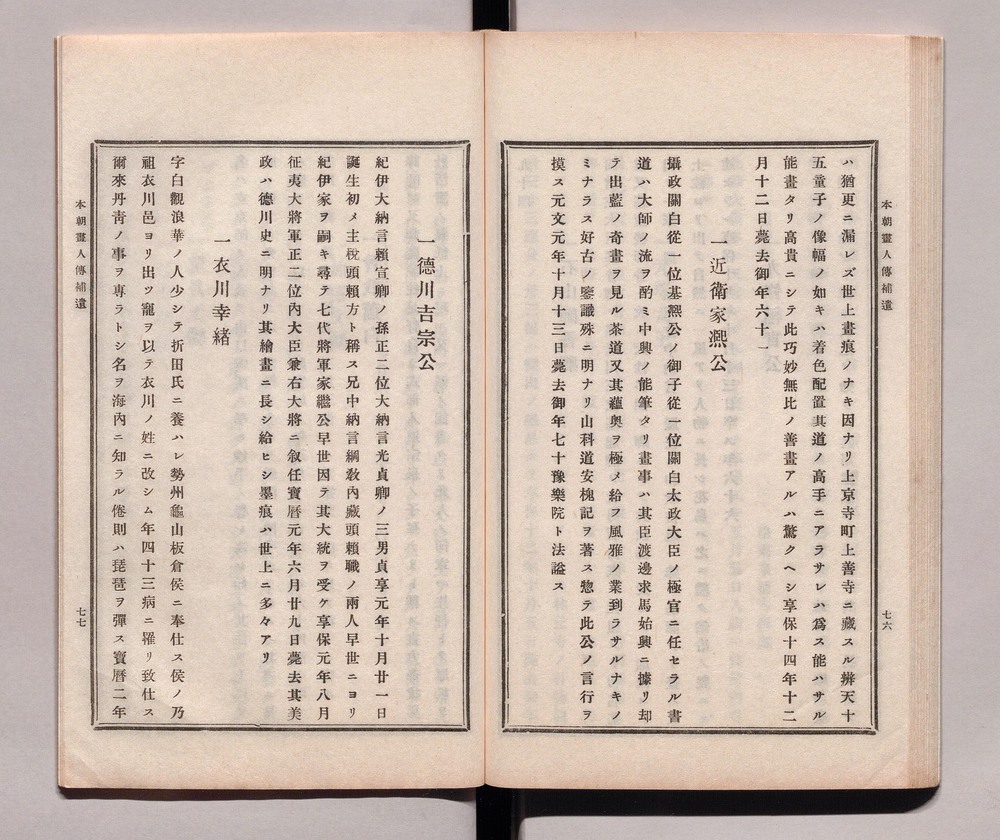 本朝畫人傳補遺
七六
ハ猶更ニ漏レズ世上畫痕ノナキ因ナリ上京寺町上善寺ニ藏スル辨天十
五童子ノ像幅ノ如キハ着色配置其道ノ高手ニアラサレハ爲ス能ハサル
能畫タリ高貴ニシテ此巧妙無比ノ善畫アルハ驚クヘシ享保十四年十二
月十二日薨去御年六十一
一近衛家凞公
攝政關白從一位基凞公ノ御子從一位關白太政大臣ノ極官ニ任セラル書
道ハ大師ノ流ヲ酌ミ中興ノ能筆タリ畫事ハ其臣渡邊求馬始興ニ據リ却
テ出藍ノ奇畫ヲ見ル茶道又其蘊奧ヲ極メ給フ風雅ノ業到ラサルナキノ
ミナラス好古ノ鑒識殊ニ明ナリ山科道安槐記ヲ著ス惣テ此公ノ言行ヲ
摸ス元文元年十月十三日薨去御年七十豫樂院ト法謚ス
一德川吉宗公
紀伊大納言賴宣卿ノ孫正二位大納言光貞卿ノ三男貞享元年十月廿一日
誕生初メ主稅頭賴方ト稱ス兄中納言綱敎內藏頭賴職ノ兩人早世ニヨリ
紀伊家ヲ嗣キ尋テ七代將軍家繼公早世因テ其大統ヲ受ケ享保元年八月
征夷大將軍正二位內大臣兼右大將ニ叙任寶曆元年六月廿九日薨去其美
政ハ德川史ニ明ナリ其繪畫ニ長シ給ヒシ墨痕ハ世上ニ多々アリ
一衣川幸緒
字白觀浪華ノ人少シテ折田氏ニ養ハレ勢州龜山板倉侯ニ奉仕ス侯ノ乃
祖衣川邑ヨリ出ツ寵ヲ以テ衣川ノ姓ニ改シム年四十三病ニ罹リ致仕ス
爾來丹靑ノ事ヲ専ラトシ名ヲ海內ニ知ラル倦則ハ琵琶ヲ彈ス寶曆二年
本朝畫人傳補遺
七七